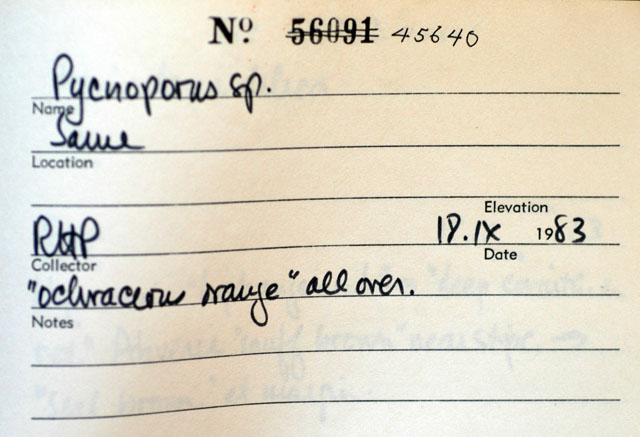 Nº 56091 45640
Pycnoporus sp.
Name
Same
Location
Elevation
RHP 18.IX 1983
Collector Date
"ochraceous orange" all over.
Notes